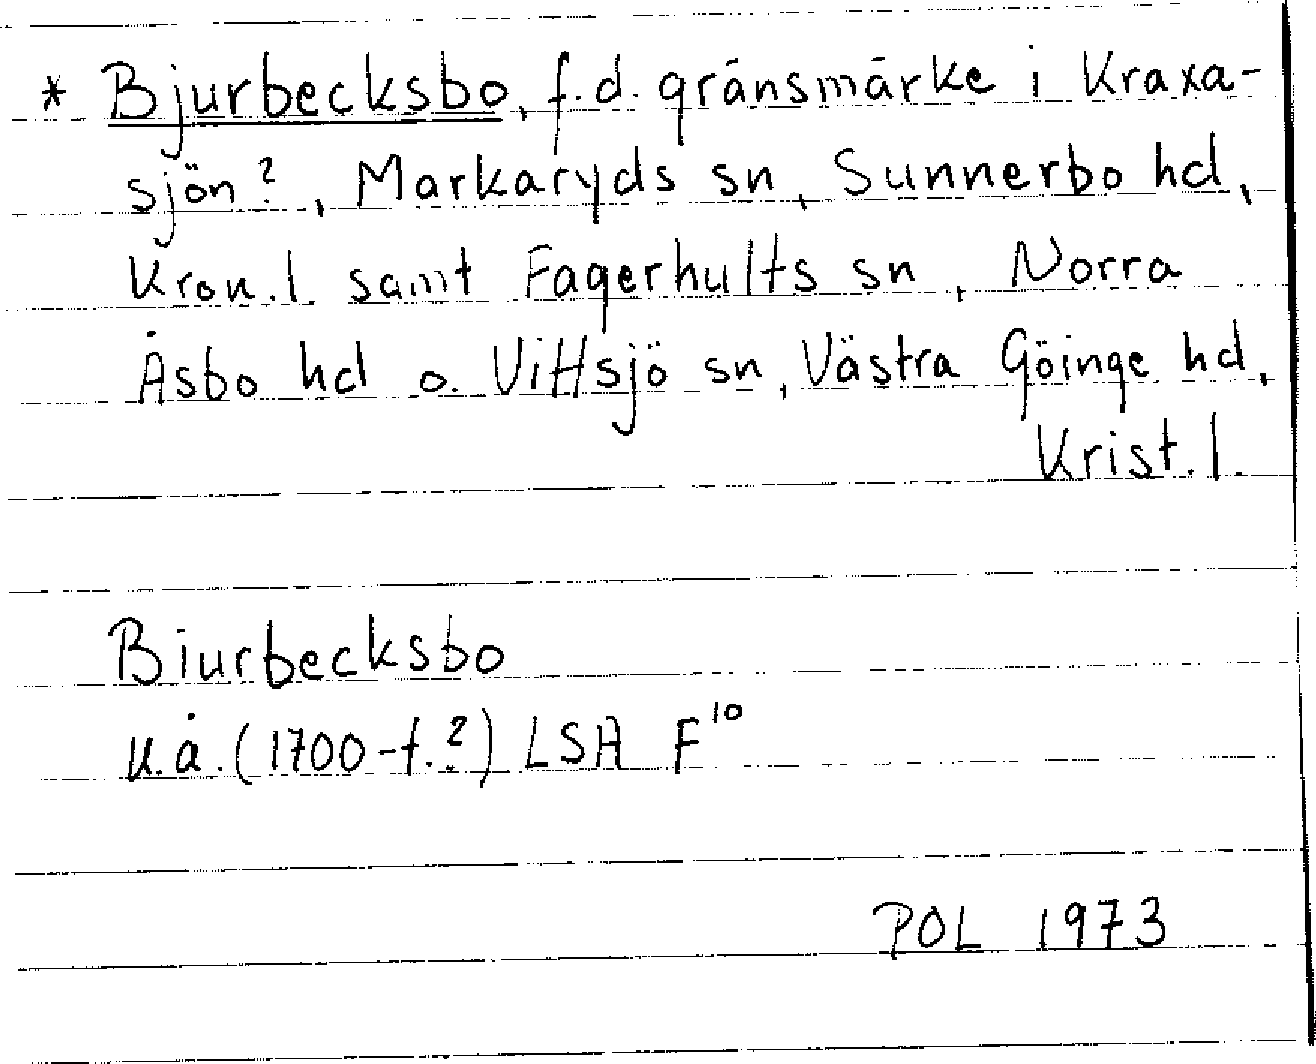 * Bjurbecksbo, f.d. gränsmärke i Kraxa-
sjön?, Markaryds sn, Sunnerbo hd,
Kron. l. samt Fagerhults sn, Norra
Åsbo hd o. Vittsjö sn, Västra Göinge hd,
Krist. l.
Biurbecksbo
u.å. (1700-t.?) LSA F¹⁰
POL 1973